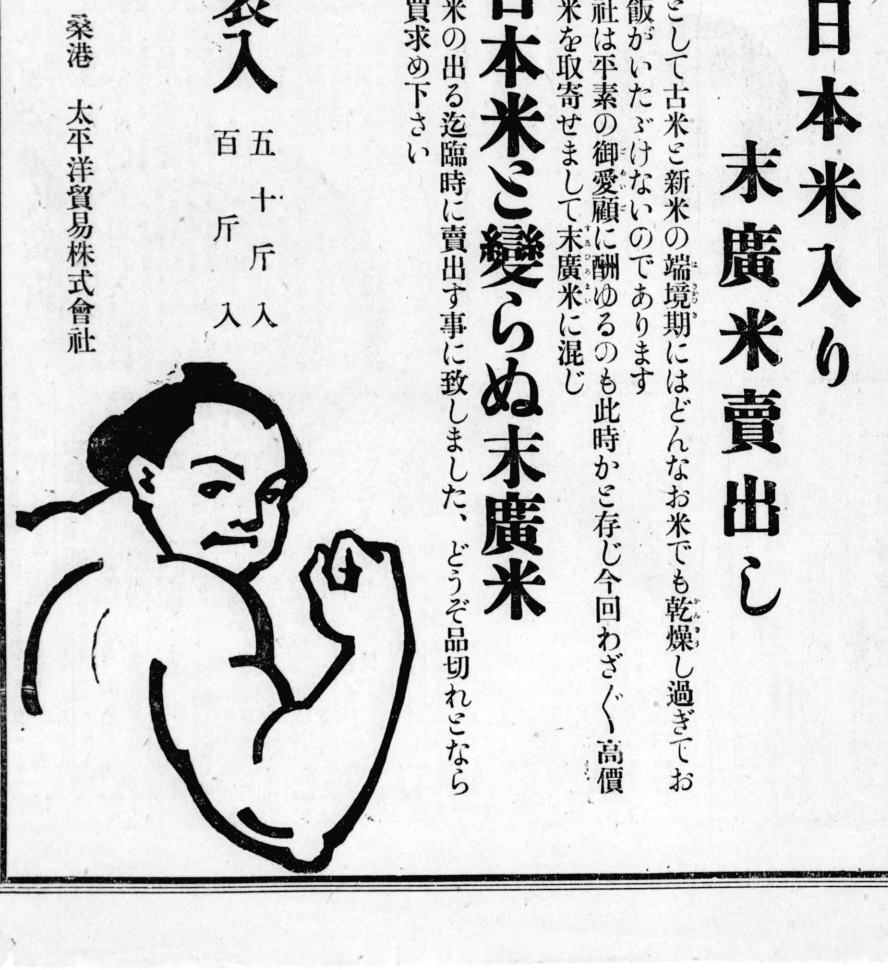 日本米入り
末廣米賣出し
として古米と新米の端境期にはどんなお米でも乾燥し過ぎてお
飯がいたゞけないのであります
社は平素の御愛顧に酬ゆるのも此時かと存じ今回わざ〳〵高價
米を取寄せまして末廣米に混じ
日本米と變らぬ末廣米
米の出る迄臨時に賣出す事に致しました、どうぞ品切れとなら
買求め下さい
袋入
五十斤入
百斤入
桑港 太平洋貿易株式會社